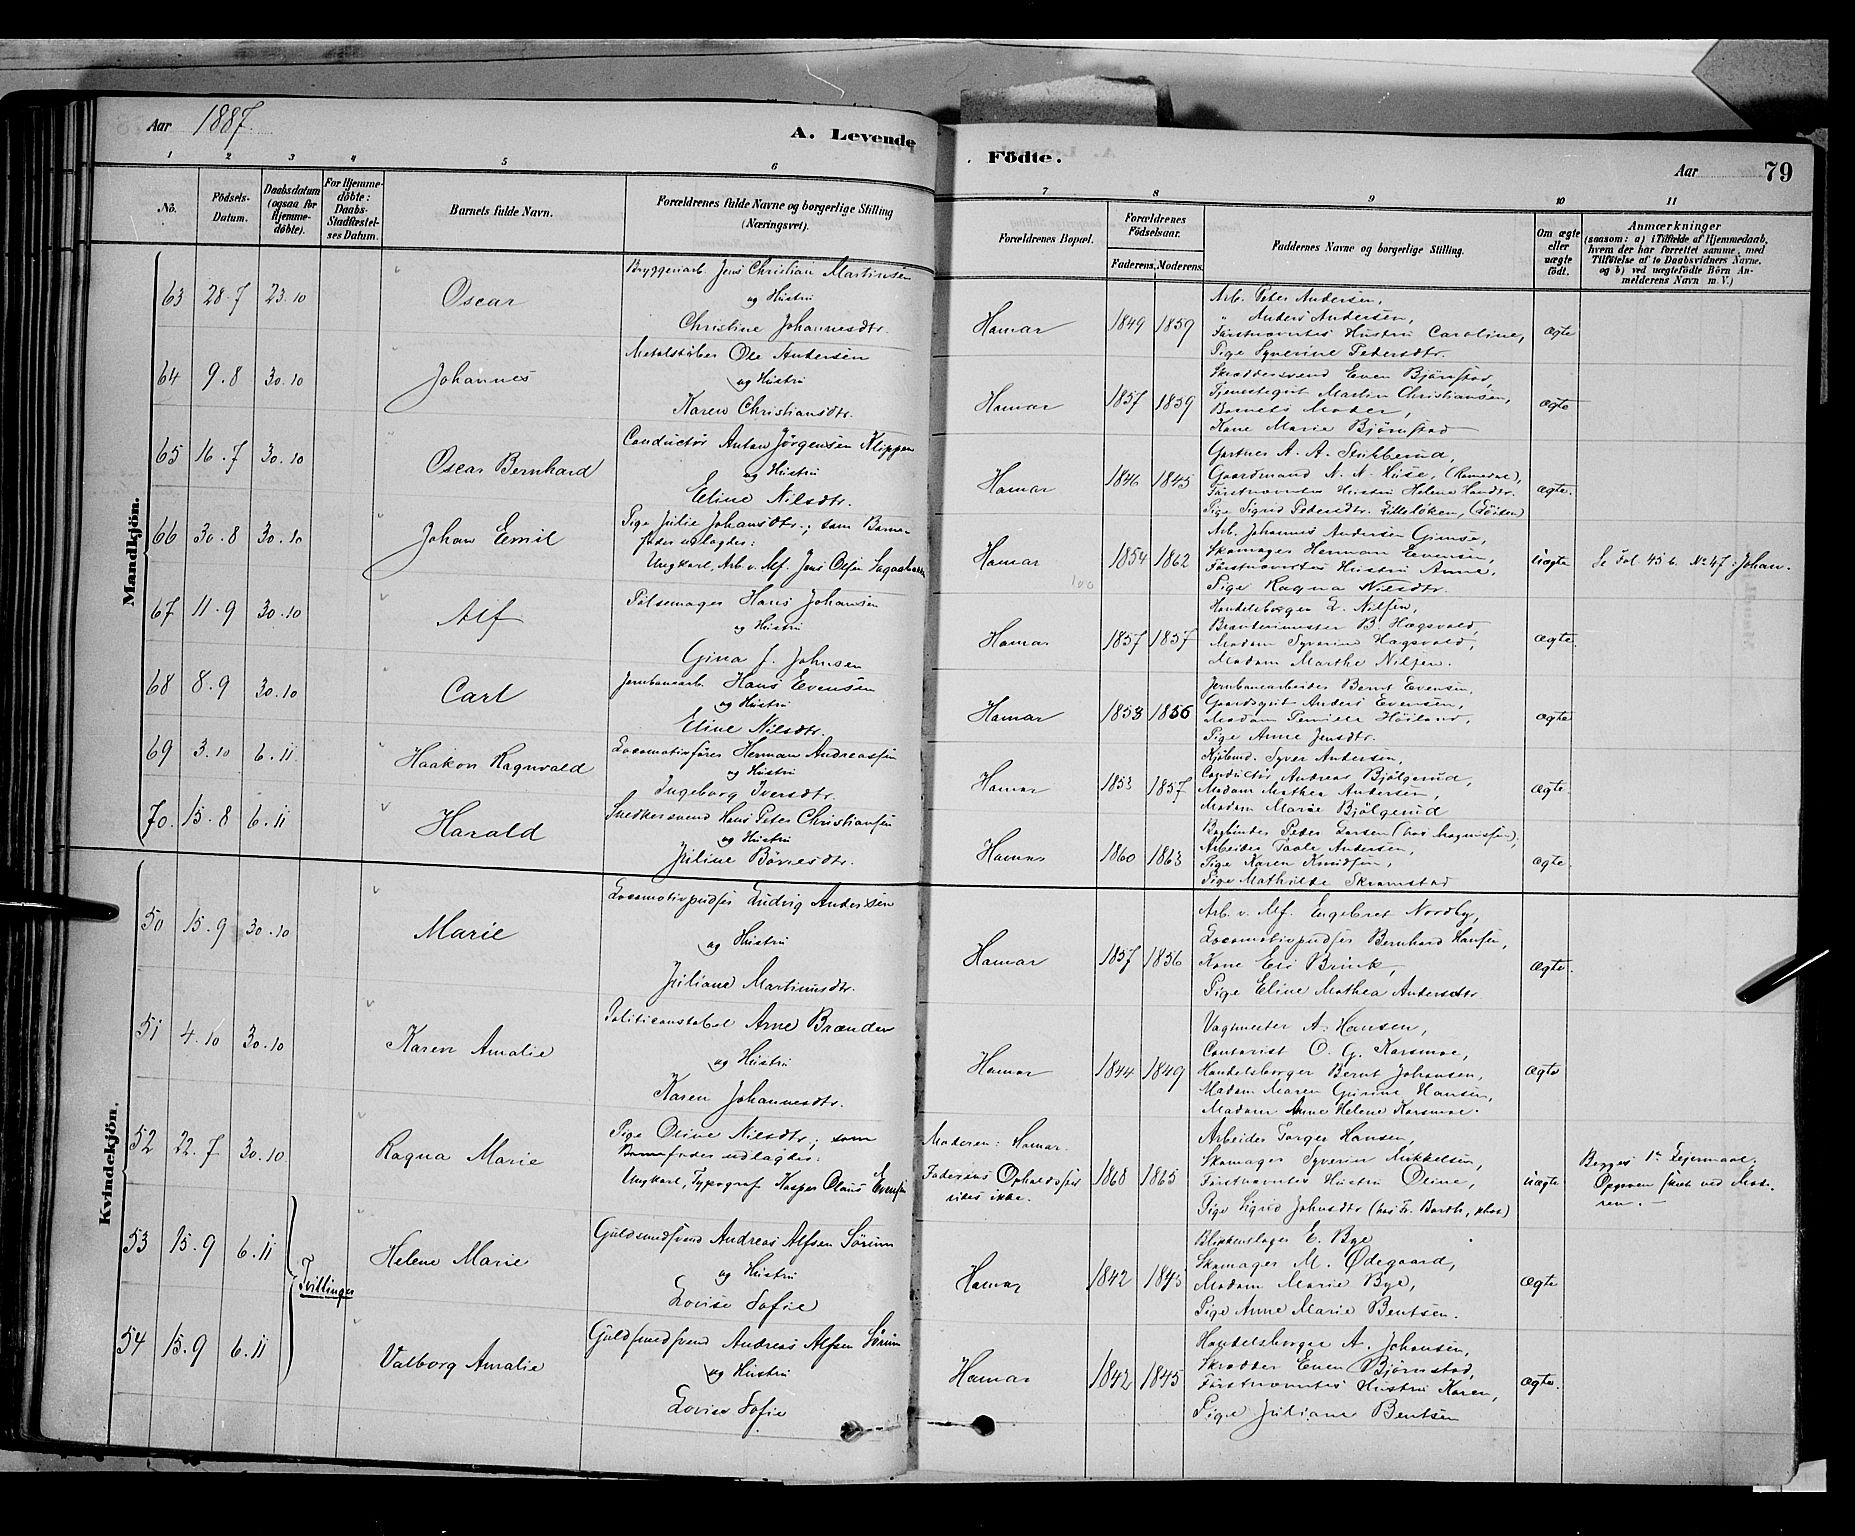 Aar 1887.
A. Levende Födte.
Aar 79
1 2 3 4 5 6 7 8 9 10 11
No.
Födsels-Datum.
Daabsdatum (ogsaa for Hjemme-döbte).
For Hjemme-döbte: Daabs-Stadfæstel-ses Datum.
Barnets fulde Navn.
Forældrenes fulde Navne og borgerlige Stilling (Næringsvei).
Forældrenes Bopæl.
Forældrenes Födselsaar.
Faderens. Moderens.
Faddernes Navne og borgerlige Stilling.
Om ægte eller uægte födt.
Anmærkninger
(saasom: a) i Tilfælde af Hjemmedaab,
hvem der har forrettet samme, med
Tilföielse af to Daabsvidners Navne,
og b) ved uægtefödte Börn An-
melderens Navn m. V.)
Mandkjön.
63 28.7 23.10 Oscar
Bryggeriarb. Jens Christian Martinsen
og Hustru
Christine Johannesdtr.
Hamar 1849 1859
Arb. Peter Andersen,
" Anders Andersen,
Förstnævntes Hustru Caroline,
Pige Syverine Pedersdtr.
ægte
64 9.8 30.10 Johannes
Metalstøber Ole Andersen
og Hustru
Karen Christiansdtr.
Hamar 1857 1859
Skræddersvend Even Bjørnstad,
Tjenestegut Martin Christiansen,
Barnets Moder,
Kone Marie Bjørnstad
ægte
65 16.7 30.10 Oscar Bernhard
Conductör Anton Jørgensen Klippen
og Hustru
Eline Nilsdtr.
Hamar 1846 1845
Gartner A. A. Stubberud,
Gaardmand N. N. Huse, (Romedal)
Förstnævntes Hustru Helene
Pige Sigrid Pedersdtr. Lilleløken, (Løiten)
ægte.
66 30.8 30.10 Johan Emil
Pige Julie Johansdtr.; som Barne-
fader udlagdes:
Ungkarl, Arb. v. Mf. Jens Olsen
Hamar 1854 1862
Arb. Johannes Andersen Gimse,
Skomager Herman Evensen,
Förstnævntes Hustru Anne,
Pige Ragna Nilsdtr.
uægte
Se Fol. 45 b. No 47: Johan.
67 11.9 30.10 Alf
Pølsemager Hans Johansen
og Hustru
Gina J. Johnsen
Hamar 1857 1857
Handelsborger E. Nilsen,
Brandmester B. Hagsvold,
Madam Syverine Hagsvold,
Madam Marthe Nilsen.
ægte.
68 8.9 30.10 Carl
Jernbanearb. Hans Evensen
og Hustru
Eline Nilsdtr.
Hamar 1853 1856
Jernbanearbeider Bernt Evensen,
Gaardsgut Anders Evensen,
Madam Pernille Høiland,
Pige Anne Jensdtr.
ægte
69 3.10 6.11 Haakon Ragnvald
Locomotivförer Herman Andreassen
og Hustru
Ingeborg Iversdtr.
Hamar 1853 1857
Kjøbmd. Syver Andersen,
Conductör Andreas Bjölgerud,
Madam Mathea Andersen,
Madam Marie Bjölgerud
ægte.
70. 15.8 6.11 Harald
Snedkersvend Hans Peter Christiansen
og Hustru
Juline Børresdtr.
Hamar 1860 1863
Bogbinder Peder Larsen (hos Magnussen),
Arbeider Paale Andersen,
Pige Karen Knudsen,
Pige Mathilde Skramstad
ægte.
Kvindekjön.
50 15.9 30.10 Marie
Locomotivpudser Ludvig Andersen
og Hustru
Juliane Martinusdtr.
Hamar 1857 1856
Arb. v. Mf. Engebret Nordby,
Locomotivpudser Bernhard Hansen,
Kone Eli Brink,
Pige Eline Mathea Andersdtr
ægte.
51 4.10 30.10 Karen Amalie
Politiconstabel Arne Brænden
og Hustru
Karen Johannesdtr.
Hamar 1844 1849
Vagtmester A. Hansen,
Contorist O. G. Korsmoe,
Handelsborger Bernt Johansen,
Madam Maren Gurine Hansen,
Madam Anne Helene Korsmoe.
Ægte
52 22.7 30.10 Ragna Marie
Pige Oline Nilsdtr; som
Barnefader udlagdes:
Ungkarl, Typograf Kasper Olaus Evensen
Moderen: Hamar.
Faderens Opholdssted vides ikke.
1868 1865
Arbeider Torger Hansen,
Skomager Syverin Mikkelsen,
Förstnævntes Hustru Oline,
Pige Sigrid Johnsdtr (hos Fr. Barth,
uægte
Begges 1ste Leiermaal.
Opgaven skeet ved Mode-
ren.
Tvillinger
53 15.9 6.11 Helene Marie
Guldsmedsvend Andreas Alfsen Sörum
og Hustru
Lovise Sofie
Hamar 1842 1845
Blikkenslager E. Bye
Skomager M. Ødegaard,
Madam Marie Bye,
Pige Anne Marie Bentsen.
Ægte
54 15.9 6.11 Valborg Amalie
Guldsmedsvend Andreas Alfsen Sörum
og Hustru
Lovise Sofie
Hamar 1842 1845
Handelsborger A. Johansen,
Skrædder Even Bjørnstad,
Förstnævntes Hustru Karen,
Pige Juliane Bentsen
Ægte.